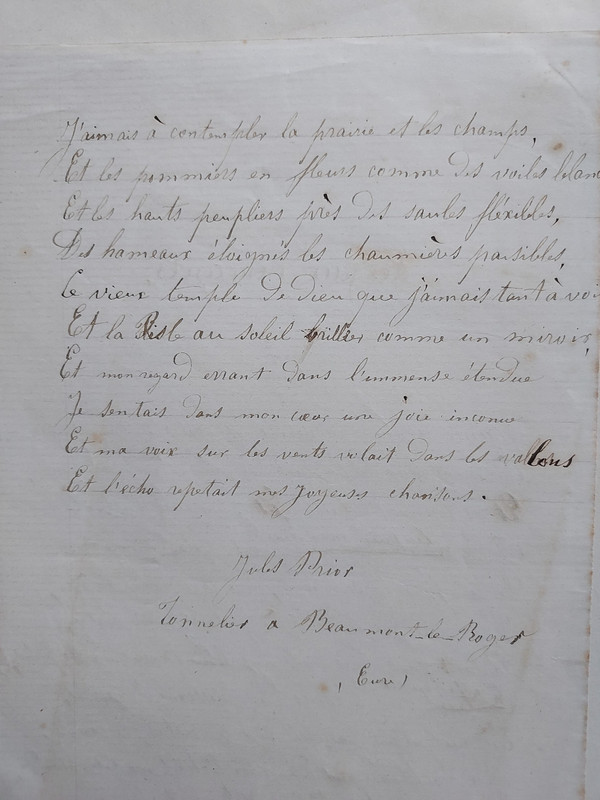 J'aimais à contempler la prairie et les champs,
Et les pommiers en fleurs comme des voiles blanc
Et les hauts peupliers près des saules fléxibles,
Des hameaux éloignés les chaumières paisibles,
Ce vieux temple de dieu que j'aimais tant à voi
Et la Risle au soleil brîller comme un miroir,
Et mon regard errant dans l'immense étendue
Je sentais dans mon cœur une joie inconue
Et ma voix sur les vents volait dans les vallons
Et l'écho repetait mes joyeuses chansons.
Jules Prior
Tonnelier a Beaumont-le-Roger
(Eure)